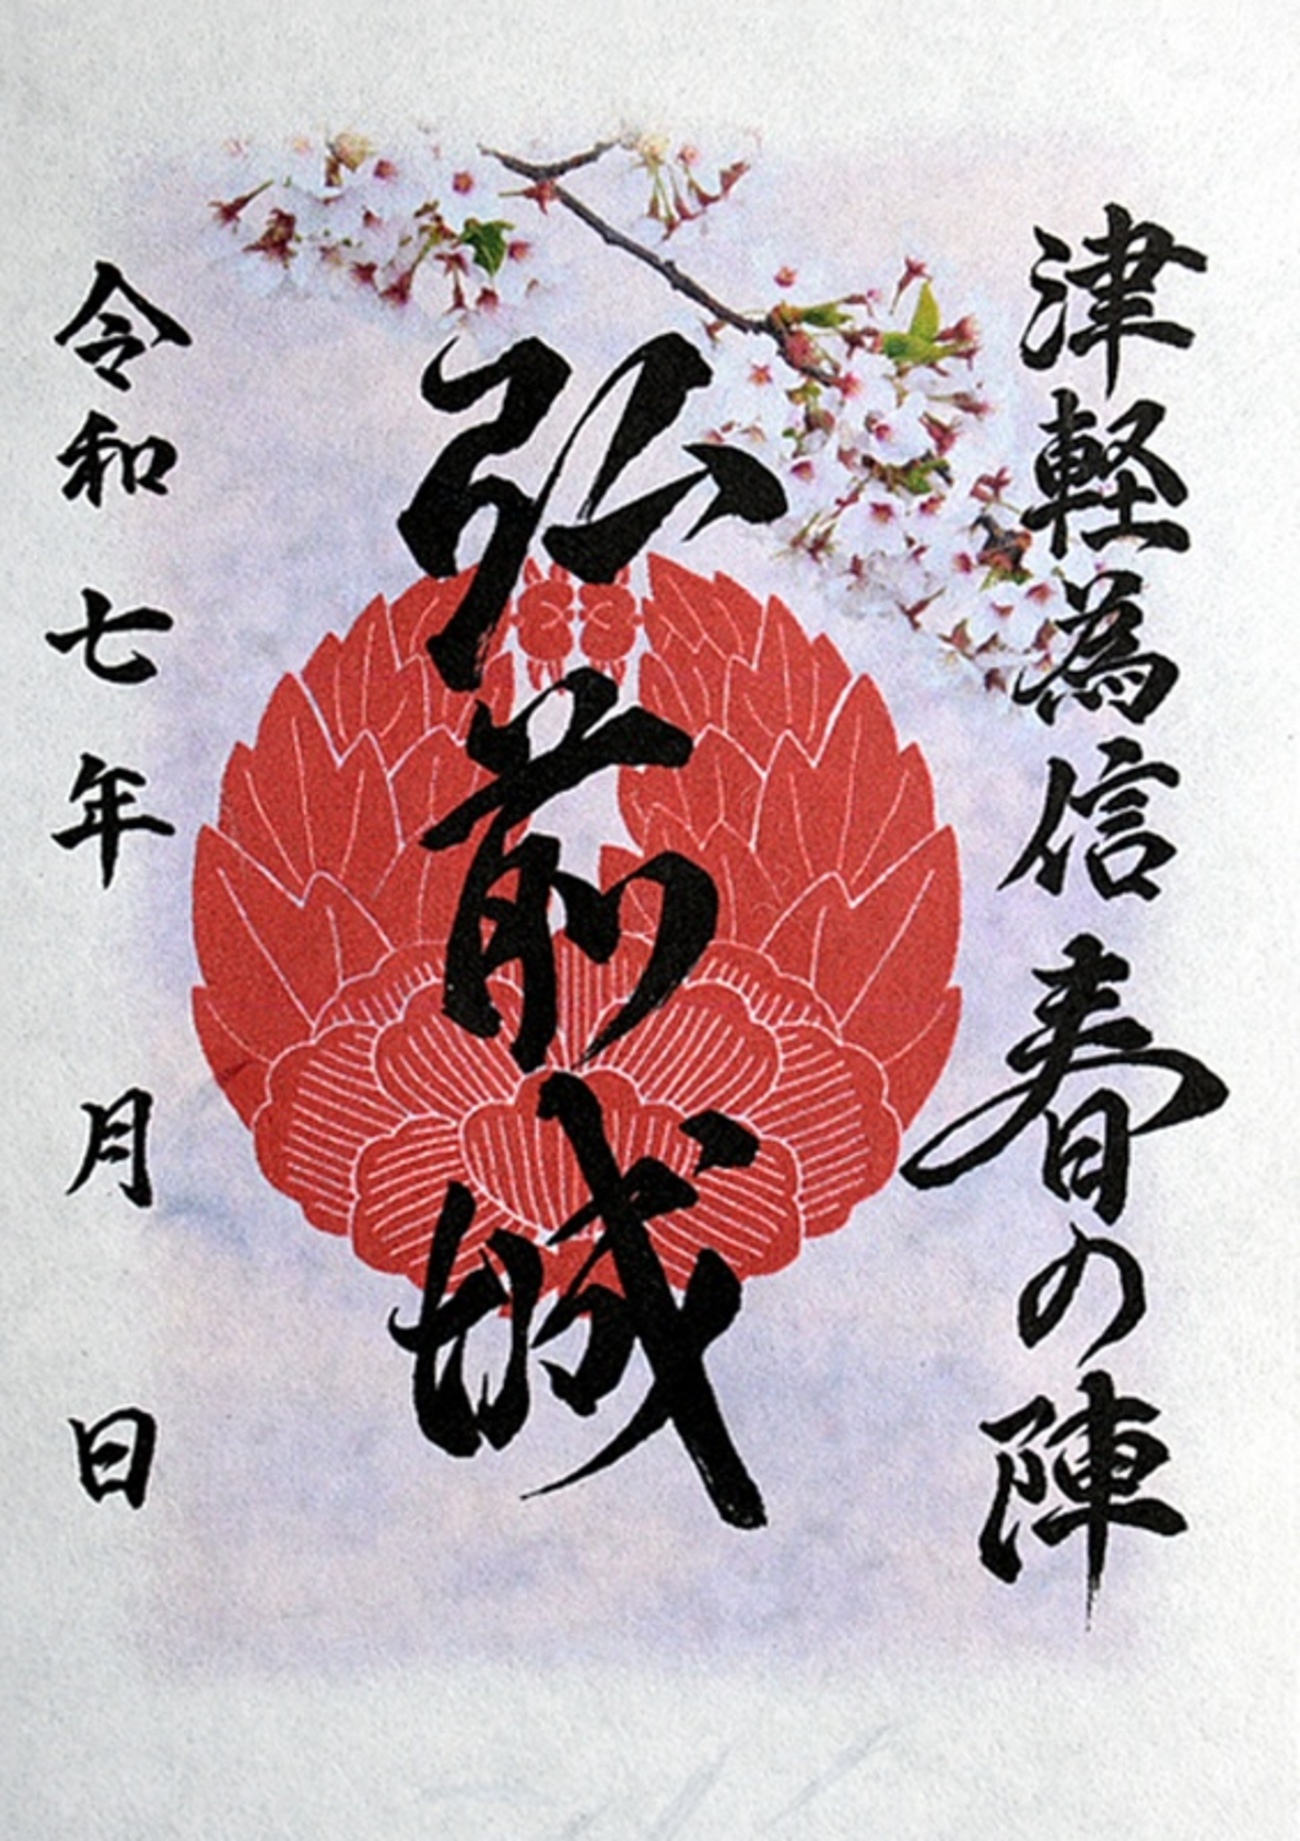 津軽為信 春の陣
弘前城
令和七年 月 日